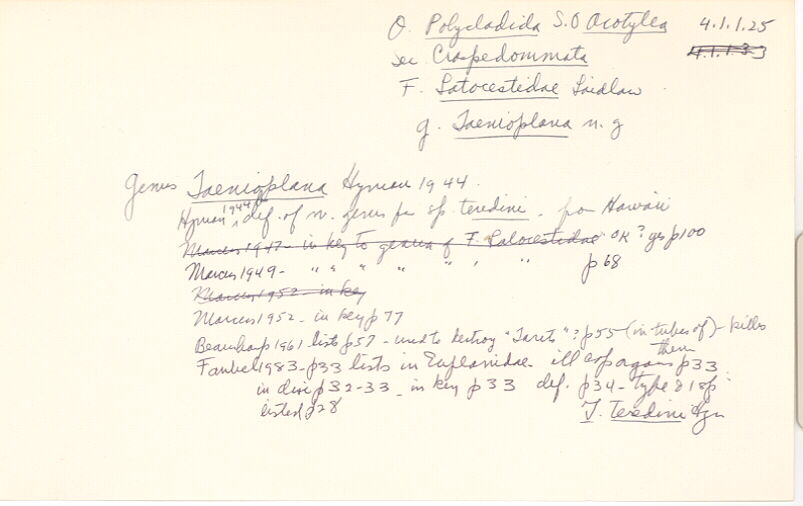 O. Polycladida S.O Acotylea 4.1.1.25
sec. Craspedommata 4.1.1.33
F. Latocestidae Laidlaw
g. Taenioplana n. g
Genus Taenioplana Hyman 1944.
Hyman 1944, def. of n. genus for sp. teredini. from Hawaii
Marcus 1947- in key to genera of F. Latocestidae OK? yes p100
Marcus 1949- " " " " " " " p 68
Marcus 1952- in key
Marcus 1952- in key p 77
Beauchamp 1961 lists p57- used to destroy "Tarets"? p55 (in tubes of)- kills them
Faubel 1983- p33 lists in Euplanidae- ill cop organs p33
in disc p32-33 - in key p33 def. p34- type & 1 sp.
listed p28 T. teredini Hyn